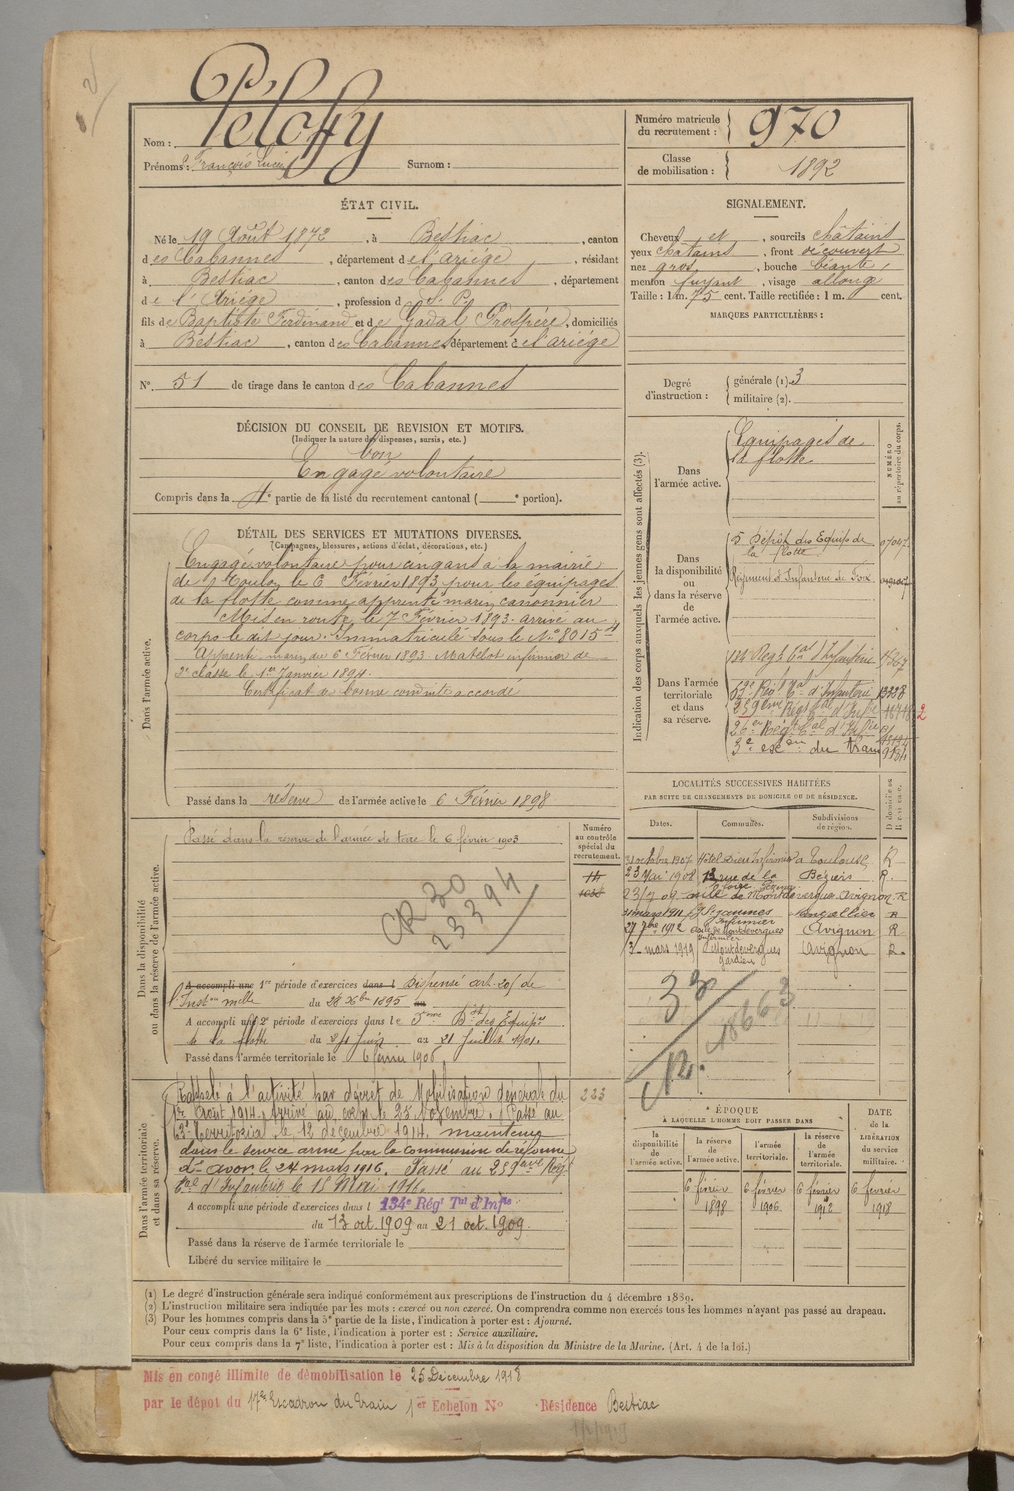 Nom : Pélofy
Prénoms : François Lucien Surnom :
Numéro matricule du recrutement : 970
Classe de mobilisation : 1892
ÉTAT CIVIL.
Né le 19 Août 1872, à Bestiac, canton
des Cabannes, département de l'ariége, résidant
à Bestiac, canton des Cabannes, département
de l'Ariége, profession de S. P.
fils de Baptiste Ferdinand et de Gadal Prospère, domiciliés
à Bestiac, canton des Cabannes, département de l'ariége
N° 51 de tirage dans le canton des Cabannes
SIGNALEMENT.
Cheveux et, sourcils châtains
yeux châtains, front découvert
nez gros, bouche béante,
menton fuyant, visage allongé
Taille : 1 m. 75 cent. Taille rectifiée : 1 m. cent.
MARQUES PARTICULIÈRES :
Degré d'instruction : générale (1). 3
militaire (2).
DÉCISION DU CONSEIL DE REVISION ET MOTIFS.
(Indiquer la nature des dispenses, sursis, etc.)
bon
Engagé volontaire
Compris dans la 4e partie de la liste du recrutement cantonal ( e portion).
DÉTAIL DES SERVICES ET MUTATIONS DIVERSES.
(Campagnes, blessures, actions d'éclat, décorations, etc.)
Dans l'armée active.
Engagé volontaire pour cinq ans à la mairie
de Toulon le 6 Février 1893 pour les équipages
de la flotte comme apprenti marin canonnier
Mis en route le 7 Février 1893. arrivé au
corps le dit jour. Immatriculé sous le N° 8015
Apprenti marin du 6 Février 1893. Matelot infirmier de
3e classe le 1er Janvier 1894.
Certificat de bonne conduite accordé
Passé dans la réserve de l'armée active le 6 Février 1898
Indication des corps auxquels les jeunes gens sont affectés (3).
NUMÉRO au répertoire du corps.
Dans l'armée active.
Equipages de
la flotte
Dans la disponibilité ou dans la réserve de l'armée active.
5 Dépôt des Equip de
la flotte 07047
Régiment d'Infanterie de Foix
Dans l'armée territoriale et dans sa réserve.
134 Régt Tal d'Infanterie
63e Régt Tal d'Infanterie 13238
259eme Régt Tal d'Infrie
26em Régt Tal d'Infrie
3e escon du train
LOCALITÉS SUCCESSIVES HABITÉES
PAR SUITE DE CHANGEMENTS DE DOMICILE OU DE RÉSIDENCE.
Dates. Communes. Subdivisions de région. D domicile ou R résidence.
31 octobre 1907 Hôtel Dieu Infirmier à Toulouse R
23 Mai 1908 13 rue de la Béziers R.
23/7 09 asile de Montdevergues Avignon R
31 mars 1911 St Infirmier Montpellier R
27 7bre 1912 asile de Montdevergues Infirmier Avignon R
3 mars 1919 Montdevergues gardien Avignon R.
Dans la disponibilité ou dans la réserve de l'armée active.
Numéro au contrôle spécial du recrutement.
Passé dans la réserve de l'armée de terre le 6 février 1903
CR 30
23394
33
18663
A accompli une 1re période d'exercices dans l Dispensé art. 205 de
l'Inston mlle du 28 Xbre 1895 au
A accompli une 2e période d'exercices dans le 5me Dt des Equip
de la flotte du 24 Juin au 21 Juillet 1901.
Passé dans l'armée territoriale le 6 février 1906
Dans l'armée territoriale et dans sa réserve.
223
Rappelé à l'activité par décret de Mobilisation générale du
1er Août 1914. Arrivé au corps le 25 Novembre. Passé au
63e Territorial le 12 décembre 1914. maintenu
dans le service armé par la commission de réforme
d'Avon le 24 mars 1916. Passé au 259eme Régt
Tal d'Infanterie le 15 Mai 1916.
A accompli une période d'exercices dans l 134e Régt Tal d'Infie
du 13 oct. 1909 au 21 oct. 1909.
Passé dans la réserve de l'armée territoriale le
Libéré du service militaire le
ÉPOQUE
À LAQUELLE L'HOMME DOIT PASSER DANS
la disponibilité de l'armée active. la réserve de l'armée active. l'armée territoriale. la réserve de l'armée territoriale. DATE de la LIBÉRATION du service militaire.
6 février 1898 6 février 1906. 6 février 1912 6 février 1918
(1) Le degré d'instruction générale sera indiqué conformément aux prescriptions de l'instruction du 4 décembre 1889.
(2) L'instruction militaire sera indiquée par les mots : exercé ou non exercé. On comprendra comme non exercés tous les hommes n'ayant pas passé au drapeau.
(3) Pour les hommes compris dans la 5e partie de la liste, l'indication à porter est : Ajourné.
Pour ceux compris dans la 6e liste, l'indication à porter est : Service auxiliaire.
Pour ceux compris dans la 7e liste, l'indication à porter est : Mis à la disposition du Ministre de la Marine. (Art. 4 de la loi.)
Mis en congé illimité de démobilisation le 25 Décembre 1918
par le dépot du 17e Escadron du Train 1er Echelon N° Résidence Bestiac